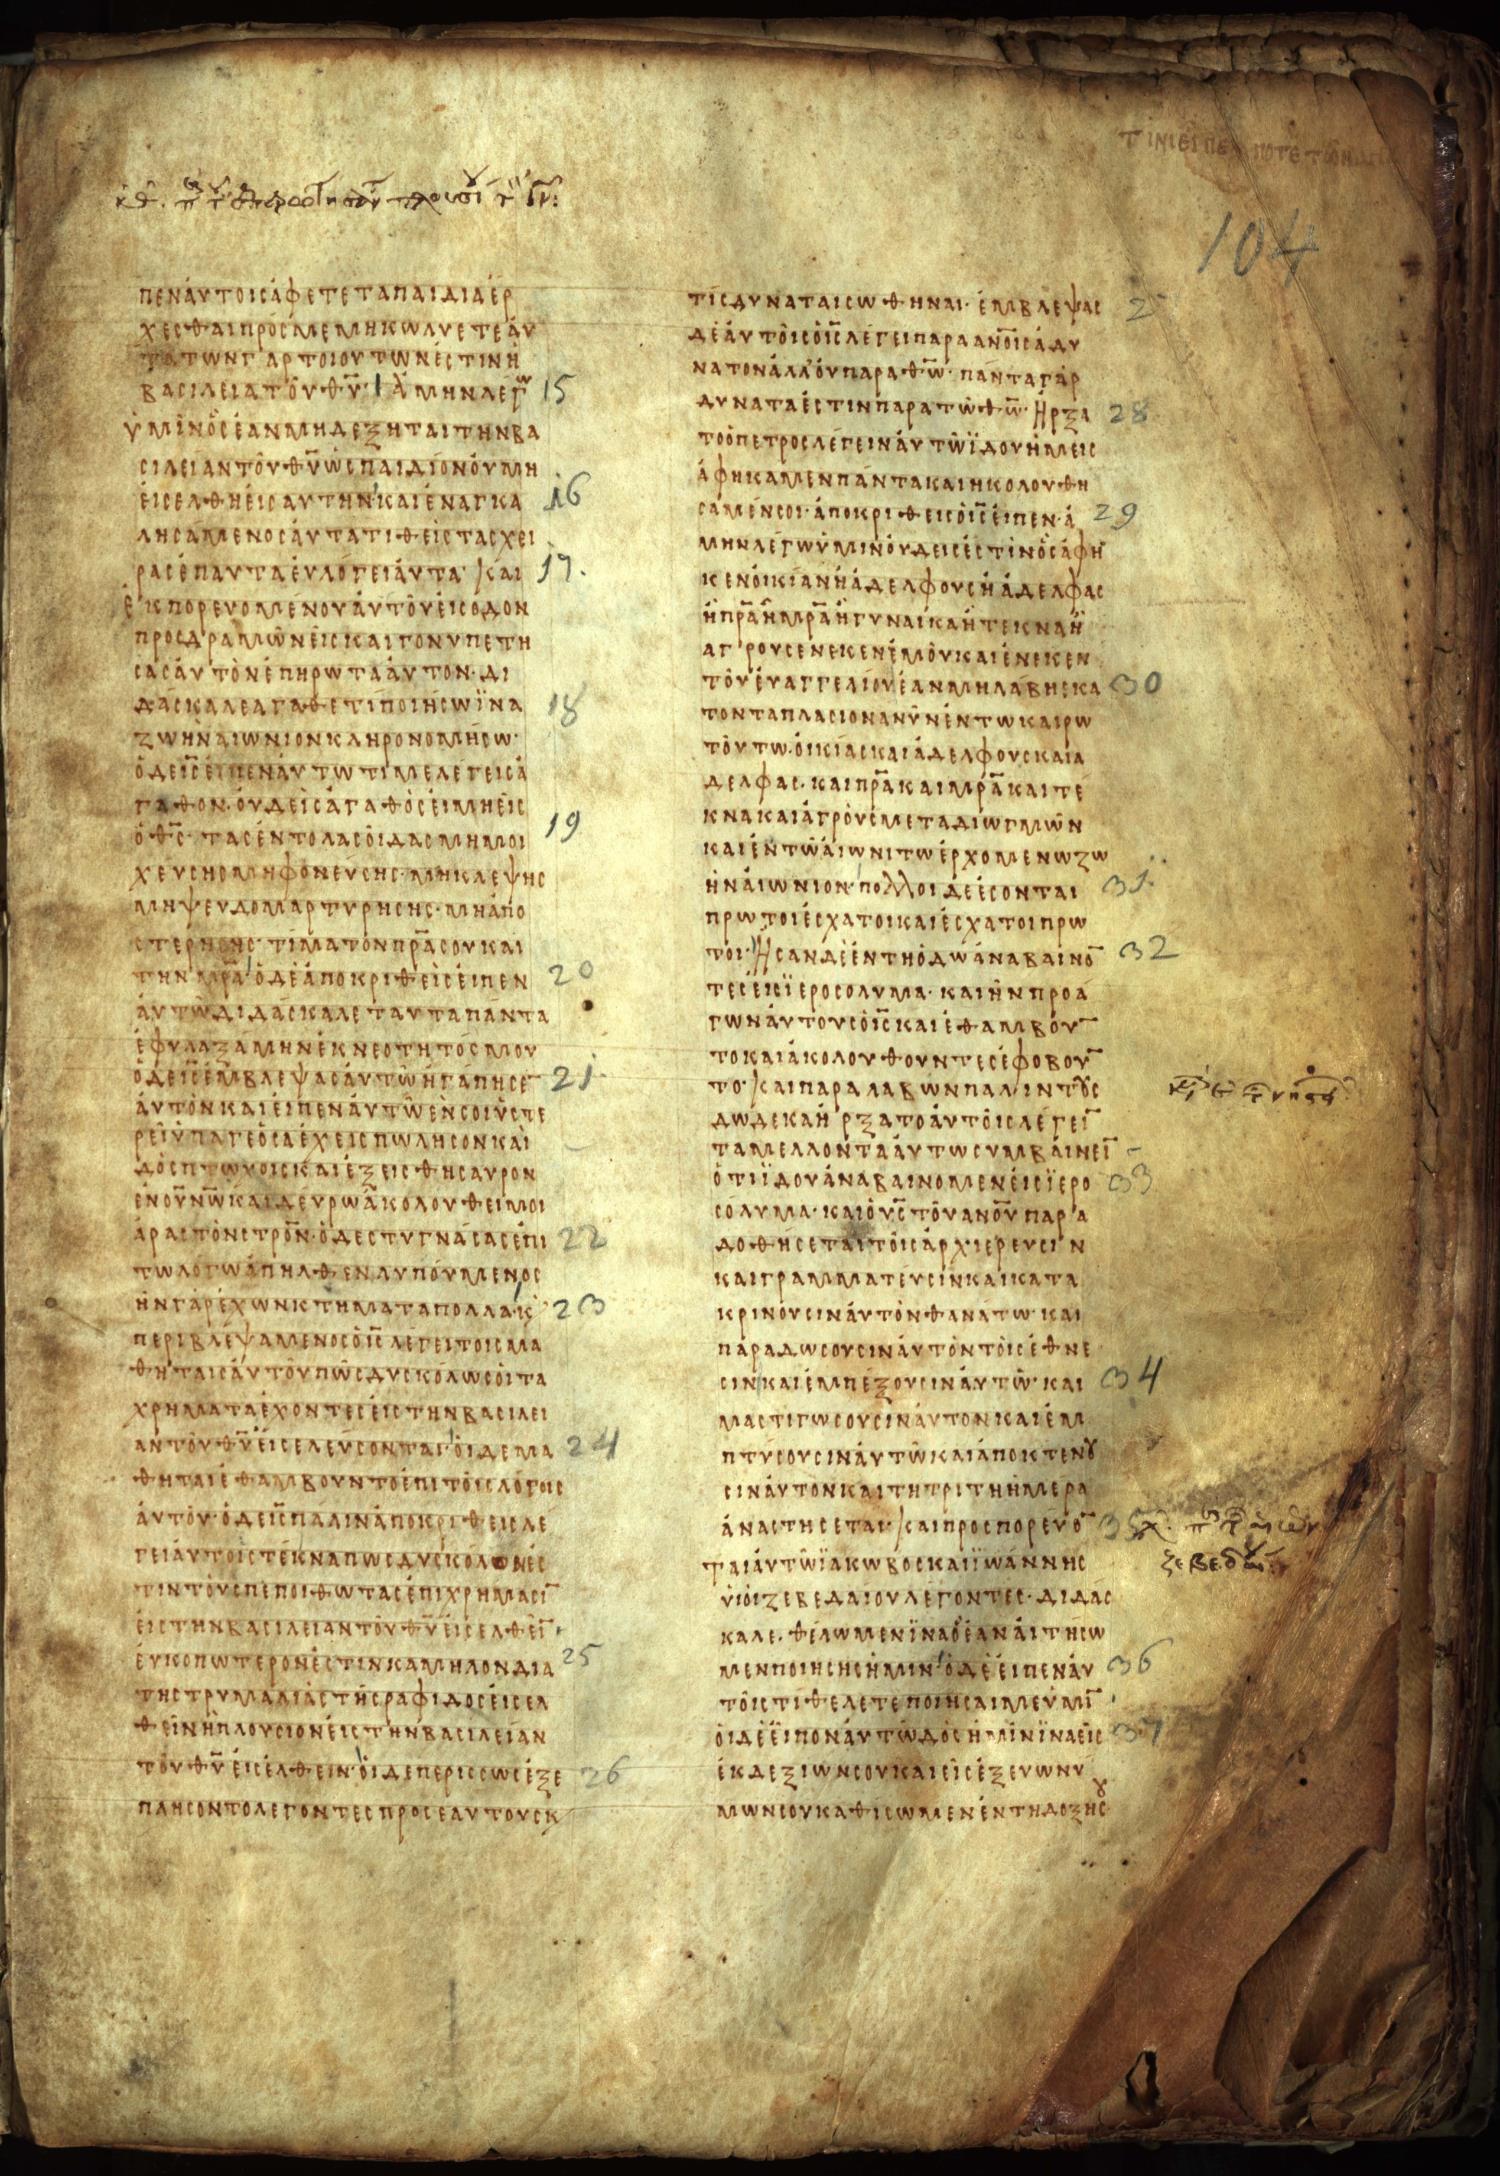 104
πεναυτοισαφετεταπαιδιαερ
χεσθαιπροσμεμηκωλυετεαυ
τατωνγαρτοιουτωνεστινη
βασιλειατουθυ· αμηνλεγω 15
υμινοσεανμηδεξηταιτηνβα
σιλειαντουθυωσπαιδιονουμη
εισελθηεισαυτηνκαιεναγκα 16
λησαμενοσαυτατιθειστασχει
ρασεπαυταευλογειαυτα· και 17.
εκπορευομενουαυτουεισοδον
προσδραμωνεισκαιγονυπετη
σασαυτονεπηρωτααυτον· δι
δασκαλεαγαθετιποιησωϊνα 18
ζωηναιωνιονκληρονομησω·
οδεισειπεναυτωτιμελεγεισα
γαθον· ουδεισαγαθοσειμηεισ
οθσ· τασεντολασοιδασμημοι 19
χευσησμηφονευσησ· μηκλεψησ
μηψευδομαρτυρησησ· μηαπο
στερησησ· τιματονπρασουκαι
τηνμρα· οδεαποκριθεισειπεν 20
αυτωδιδασκαλεταυταπαντα
εφυλαξαμηνεκνεοτητοσμου
οδεισεμβλεψασαυτωηγαπησε 21
αυτονκαιειπεναυτωενσοιυστε
ρειυπαγεοσαεχεισπωλησονκαι
δοσπτωχοισκαιεξεισθησαυρον
ενουνωκαιδευρωακολουθειμοι
αραστονστρον· οδεστυγνασασεπι 22
τωλογωαπηλθενλυπουμενοσ
ηνγαρεχωνκτηματαπολλακ 23
περιβλεψαμενοσοισλεγειτοισμα
θηταισαυτουπωσδυσκολωσοιτα
χρηματαεχοντεσειστηνβασιλει
αντουθυεισελευσονταιοιδεμα 24
θηταιεθαμβουντοεπιτοισλογοισ
αυτου· οδεισπαλιναποκριθεισλε
γειαυτοιστεκναπωσδυσκολονεσ
τιντουσπεποιθωτασεπιχρημασι
ειστηνβασιλειαντουθυεισελθει
ευκοπωτερονεστινκαμηλονδια 25
τηστρυμαλιαστησραφιδοσεισελ
θεινηπλουσιονειστηνβασιλειαν
τουθυεισελθεινοιδεπερισσωσεξε 26
πλησοντολεγοντεσπροσεαυτουσκ
τισδυναταισωθηναι· εμβλεψασ 27
δεαυτοισοισλεγειπαραανοισαδυ
νατοναλλουπαραθω· πανταγαρ
δυναταεστινπαρατωθω· ηρξα 28
τοοπετροσλεγειναυτωϊδουημεισ
αφηκαμενπαντακαιηκολουθη
σαμενσοι· αποκριθεισοισειπεν· α 29
μηνλεγωυμινουδεισεστινοσαφη
κενοικιανηαδελφουσηαδελφασ
ηπραημραηγυναικαητεκναη
αγρουσενεκενεμουκαιενεκεν
τουευαγγελιουεανμηλαβησκα 30
τονταπλασιονανυνεντωκαιρω
τουτω· οικιασκαιαδελφουσκαια
δελφασ· καιπρακαιμρακαιτε
κνακαιαγρουσμεταδιωγμων
καιεντωαιωνιτωερχομενωζω
ηναιωνιον· πολλοιδεεσονται 31.
πρωτοιεσχατοικαιεσχατοιπρω
τοι· ησανδεεντηοδωαναβαινο 32
τεσεισϊεροσολυμα· καιηνπροα
γωναυτουσοισκαιεθαμβουν
τοκαιακολουθουντεσεφοβουν
το· καιπαραλαβωνπαλιντουσ
δωδεκαηρξατοαυτοισλεγει
ταμελλοντααυτωσυμβαινει
οτιϊδουαναβαινομενεισϊερο 33
σολυμα· καιουστουανουπαρα
δοθησεταιτοισαρχιερευσιν
καιγραμματευσινκαικατα
κρινουσιναυτονθανατω· και
παραδωσουσιναυτοντοισεθνε
σινκαιεμπεξουσιναυτω· και 34
μαστιγωσουσιναυτονκαιεμ
πτυσουσιναυτωκαιαποκτενου
σιναυτονκαιτητριτηημερα
αναστησεται· καιπροσπορευο 35
ταιαυτωϊακωβοσκαιϊωαννησ
υιοιζεβεδαιουλεγοντεσ· διδασ
καλε· θελωμενϊναοεαναιτησω
μενποιησησημιν· οδεειπεναυ 36
τοιστιθελετεποιησαιμευμι
οιδεειποναυτωδοσημινϊναεισ 37
εκδεξιωνσουκαιεισεξευωνυ
μωνσουκαθισωμενεντηδοξησου
ζεβεδαι